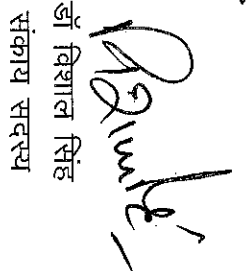 डॉ विशाल सिंह
संकाय सदस्य